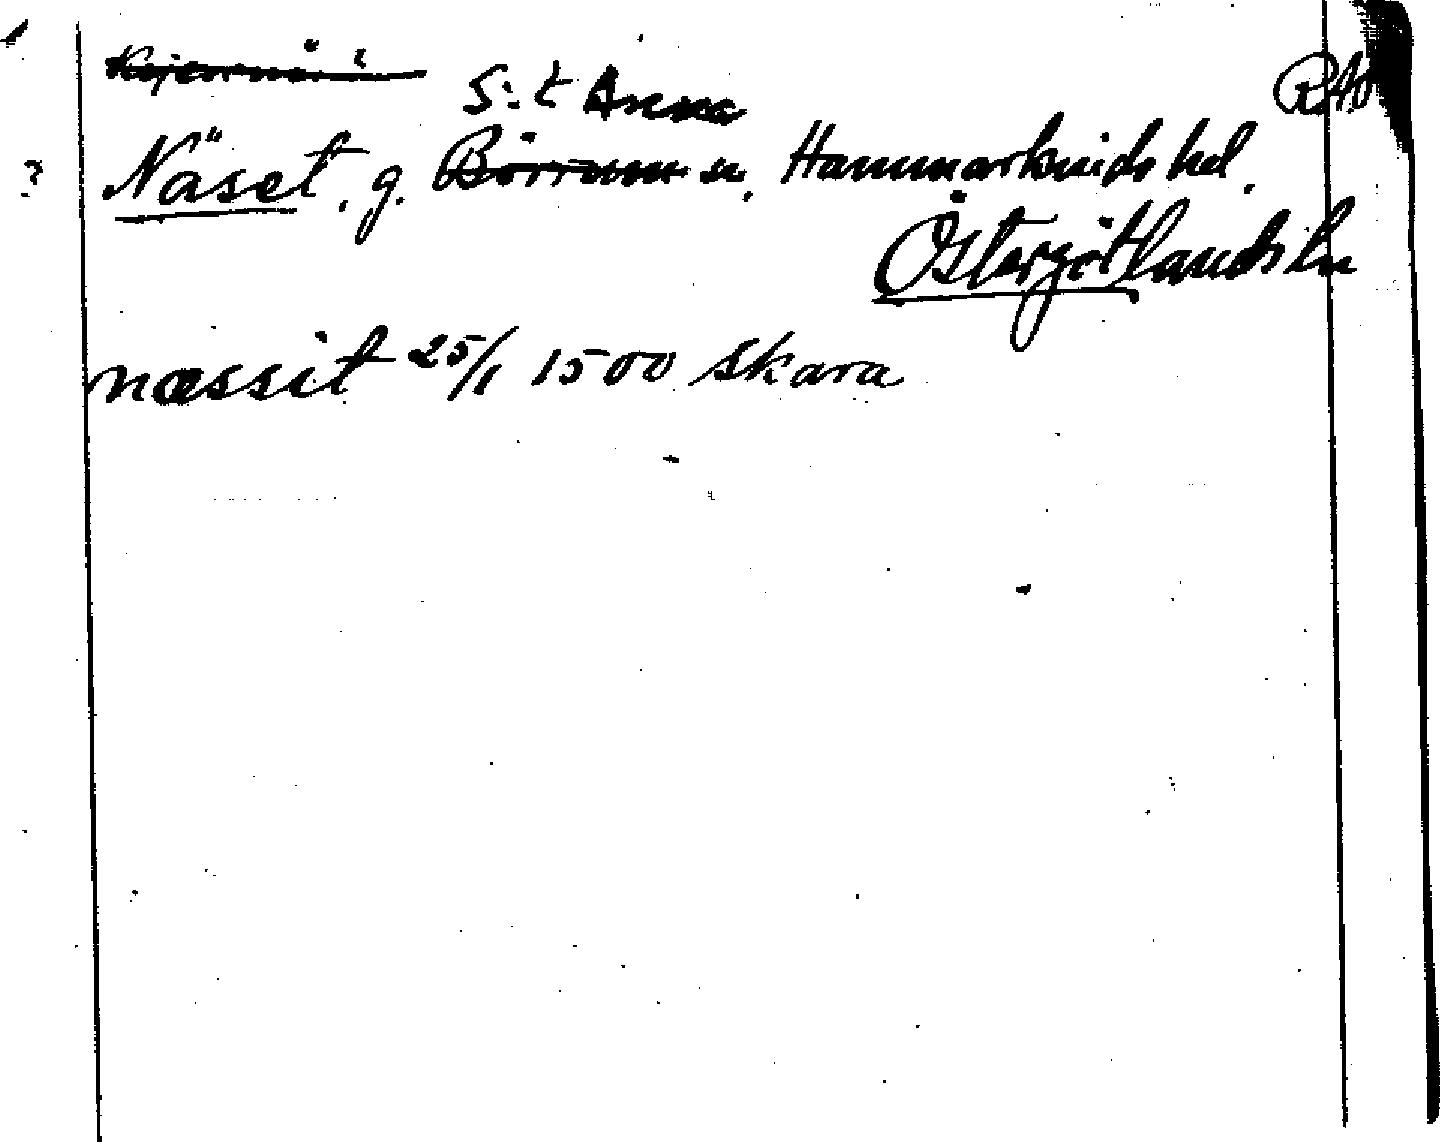 S:t Anna
RAP
? Näset, g. Börrum sn, Hammarkinds hd.
Östergötlands län
næssit 25/1 1500 Skara